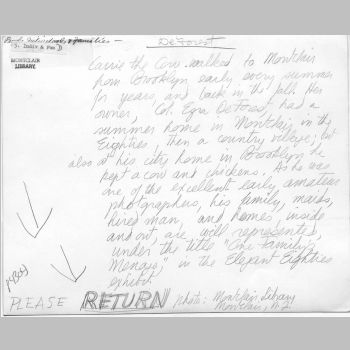 Individuals & Families -
5. Indiv & Fam D
MONTCLAIR
LIBRARY.
DeForest
Carrie the Cow walked to Montclair
from Brooklyn early every summer
for years, and back in the fall. Her
owner, Col. Ezra DeForest had a
summer home in Montclair in the
Eighties, then a country village; but
also at his city home in Brooklyn he
kept a cow and chickens. As he was
one of the excellent early amateur
photographers, his family, maids,
hired man, and homes, inside
and out, are well represented,
under the title "One Family's
Menage", in the Elegant Eighties
exhibit.
PLEASE RETURN Photo: Montclair Library
Montclair, N.J.